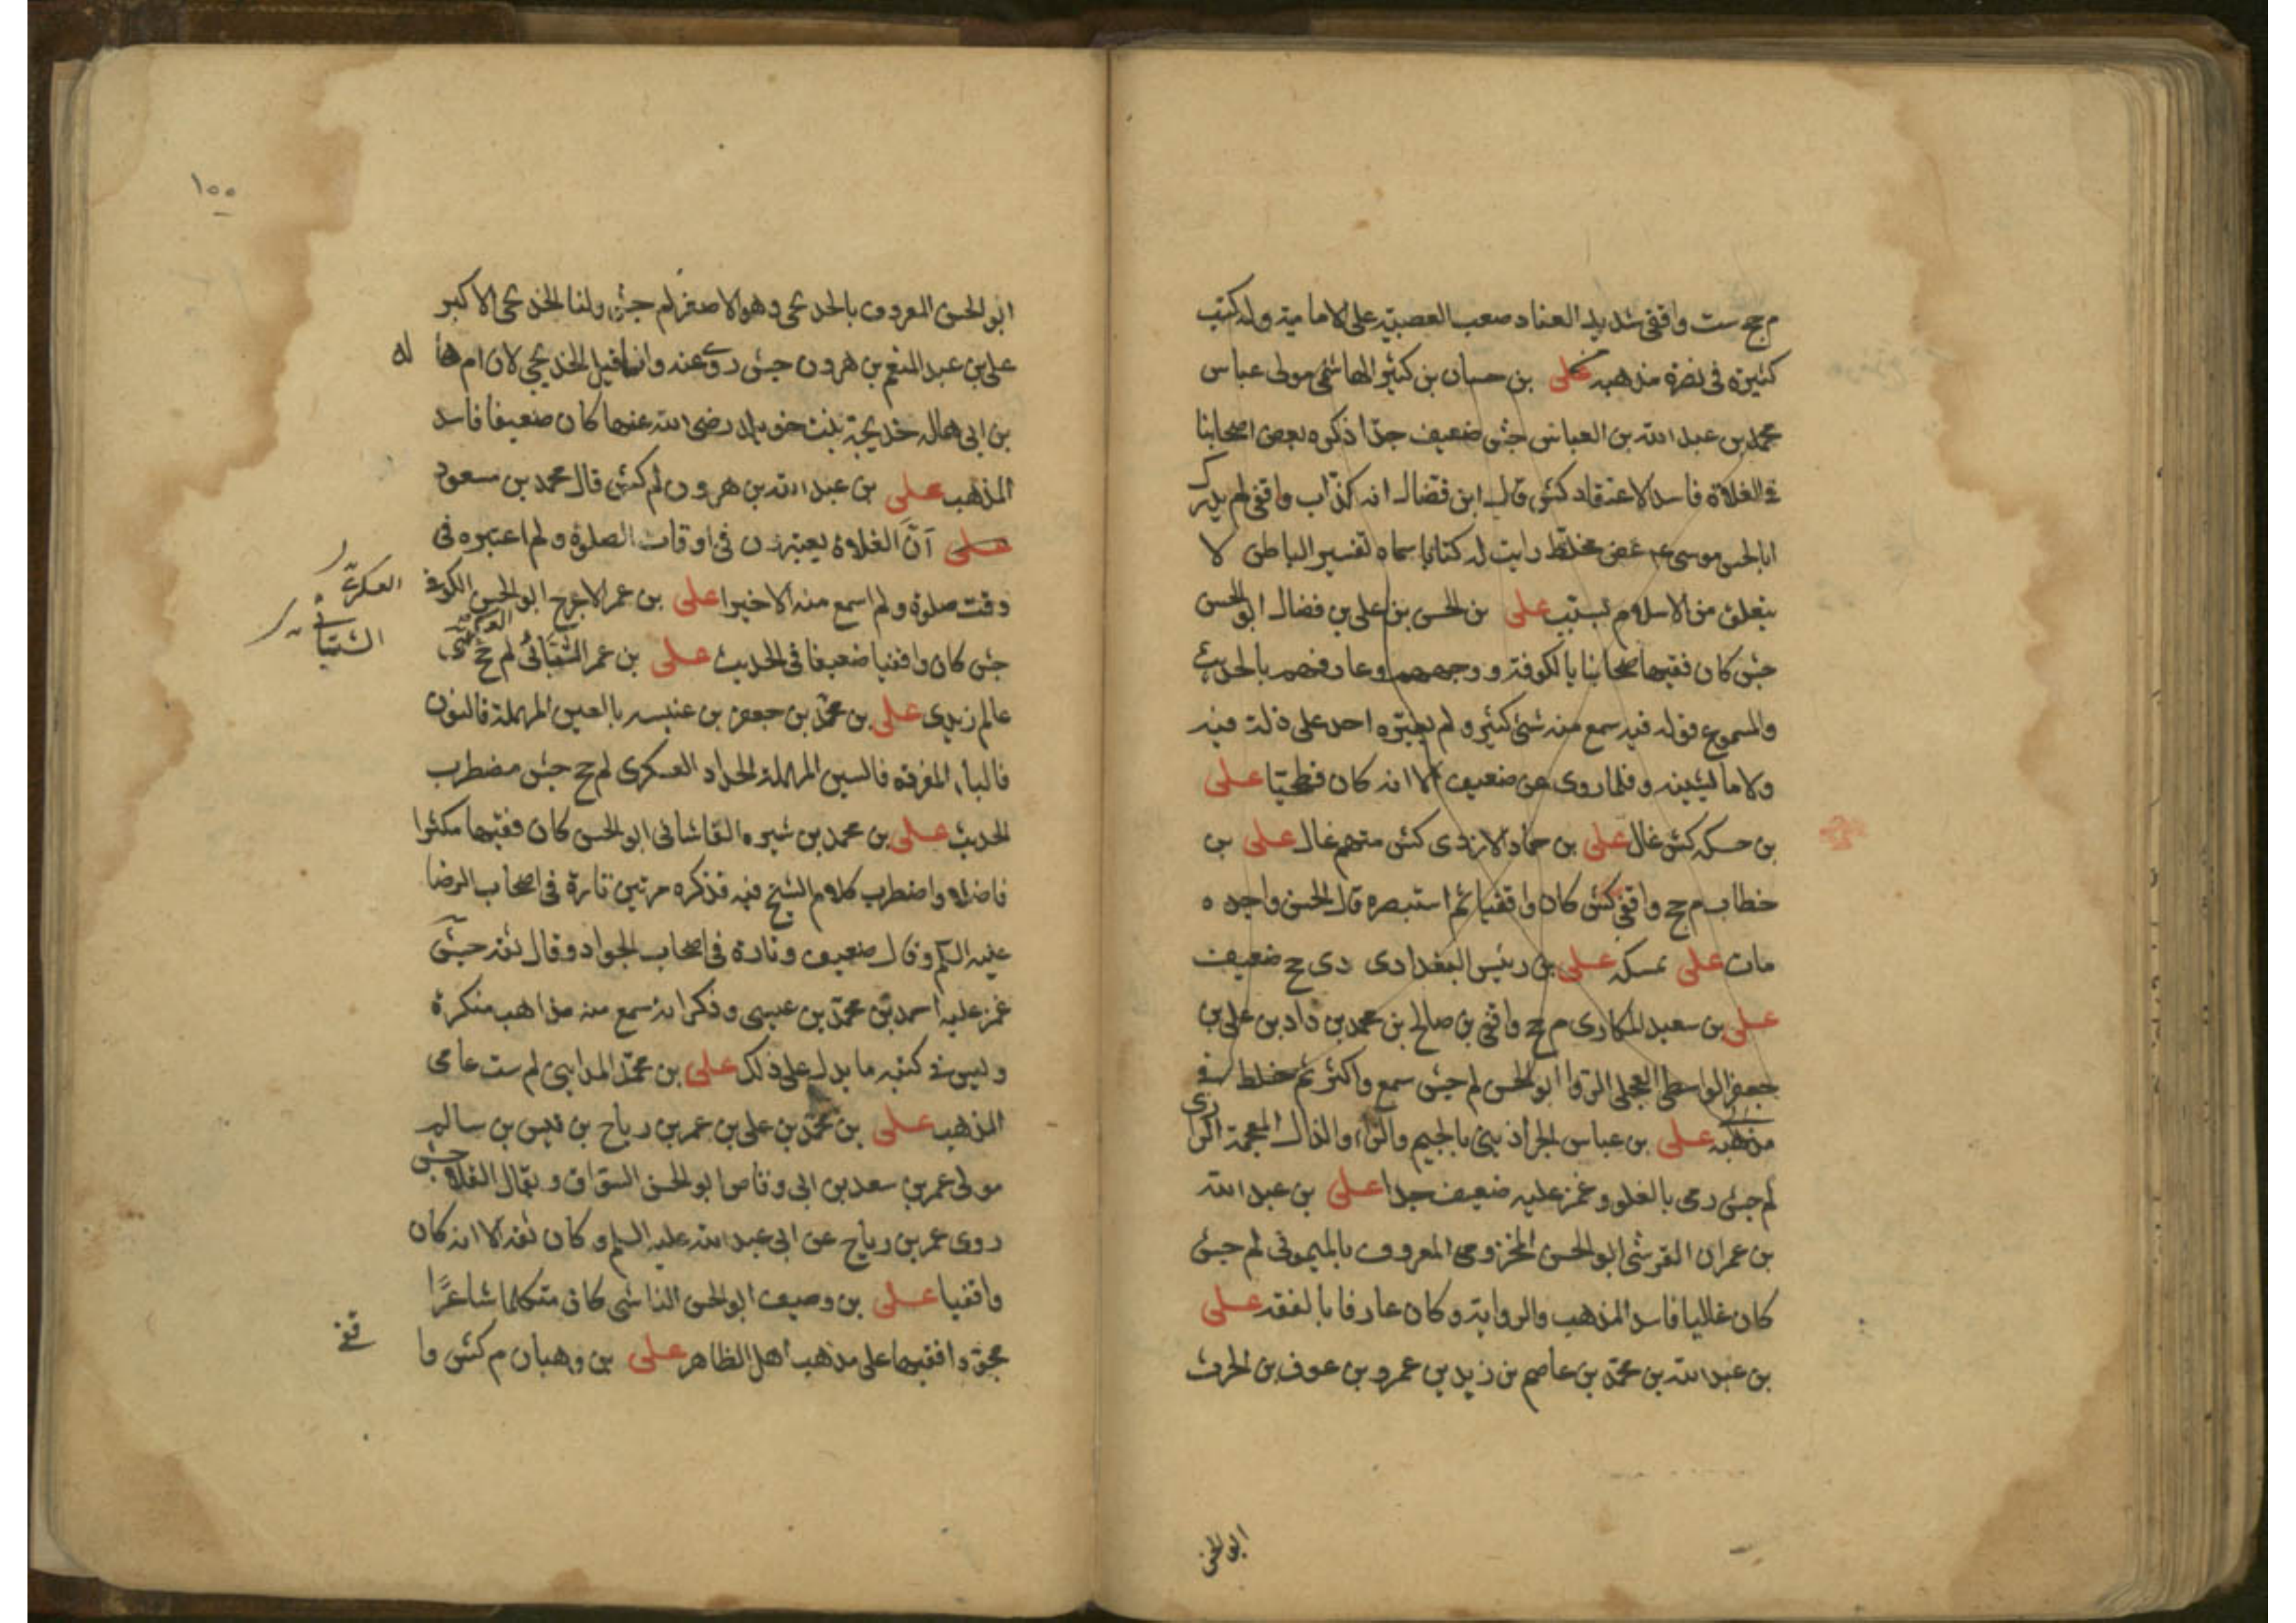 م جح ست واقفى شديد العناد صعب العصبية على الامامية وله كتب
كثيرة فى نصرة مذهبه على بن حسان بن كثير الهاشمى مولى عباس
محمد بن عبد الله بن العباس جش ضعيف جدا ذكره بعض اصحابنا
فى الغلاة فاسد الاعتقاد كش قال ابن فضال انه كذاب واقفى لم يدرك
ابا الحسن موسى ع غض مخلط رايت له كتابا سماه تفسير الباطن لا
يتعلق من الاسلام بسبب على بن الحسن بن على بن فضال ابو الحسن
جش كان فقيه اصحابنا بالكوفة ووجههم وعارفهم بالحديث
والمسموع قوله فيه سمع منه شئ كثير ولم يعثر احد على ذلة فيه
ولا ما يشينه وقلما روى عن ضعيف الا انه كان فطحيا على
بن حسكه كش غال على بن حماد الازدى كش متهم غال على بن
خطاب م جح واقفى كش كان واقفيا ثم استبصره قال الحسن واجده
مات على عسكه على بن رئيس البغدادى دى جح ضعيف
على بن سعيد المكارى م جح واقفى بن صالح بن محمد بن داد بن على بن
جعفر الواسطى العجلى الرفا ابو الحسن لم جش سمع واكثر ثم خلط فى
مذهبه على بن عباس الجراذينى بالجيم والراء والذال المعجمة الرازى
لم جش رمى بالغلو وغمز عليه ضعيف جدا على بن عبد الله
بن عمران القرشى ابو الحسن المخزومى المعروف بالميمونى لم جش
كان غاليا فاسد المذهب والرواية وكان عارفا بالفقه على
بن عبد الله بن محمد بن عاصم بن زيد بن عمرو بن عوف بن الحرث
ابو الحسن
١٥٥
ابو الحسن المعروف بالخديجى وهو الاصغر لم جش ولنا الخديجى الاكبر
على بن عبد المنعم بن هرون جش روى عنه وانما قيل الخديجى لان ام هالة
بن ابى هاله خديجة بنت خويلد رضى الله عنها كان ضعيفا فاسد
المذهب على بن عبد الله بن هرون لم كش قال محمد بن مسعود
على آن الغلاة يعتبرون فى اوقات الصلوة ولم اعتبره فى
وقت صلوة ولم اسمع منه الا خيرا على بن عمر الاعرج ابو الحسن الكوفى
جش كان واقفيا ضعيفا فى الحديث على بن عمر الشيبانى لم جخ
العسكرى
الشيبانى
عالم زيدى على بن محمد بن جعفر بن عنبسه بالعين المهملة فالنون
فالباء المفردة فالسين المهملة الحداد العسكرى لم جح جش مضطرب
الحديث على بن محمد بن شيره القاشانى ابو الحسن كان فقيها مكثرا
فاضلا واضطرب كلام الشيخ فيه فذكره مرتين تارة فى اصحاب الرضا
عليه السلم وقال ضعيف وتارة فى اصحاب الجواد وقال ثقه جش
غمز عليه احمد بن محمد بن عيسى وذكر انه سمع منه مذاهب منكرة
وليس فى كتبه ما يدل على ذلك على بن محمد المداينى لم ست عامى
المذهب على بن محمد بن على بن عمر بن رباح بن قيس بن سالم
مولى عمر بن سعد بن ابى وقاص ابو الحسن السواق ويقال القلا جش
روى عمر بن رباح عن ابى عبد الله عليه السلم وكان ثقه الا انه كان
واقفيا على بن وصيف ابو الحسن الناشى كان متكلما شاعرًا
مجودا فقيها على مذهب اهل الظاهر على بن وهبان م كش وا
قفى